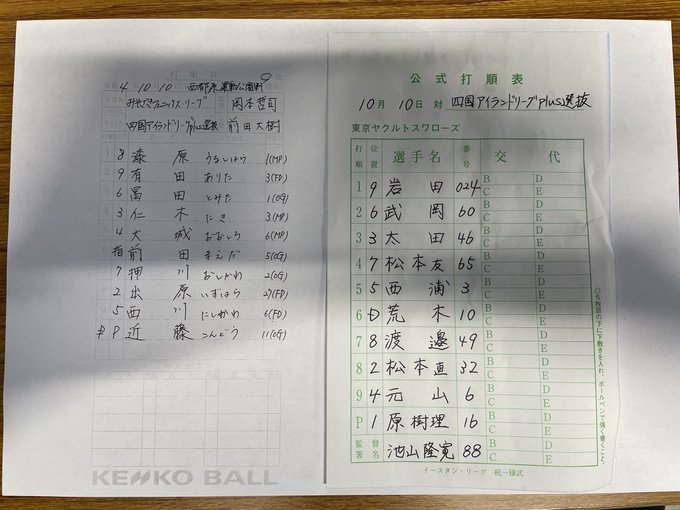 打順表
令和 4 10 10 西都原運動公園野
みやざきフェニックス・リーグ 岡本哲司
四国アイランドリーグplus選抜 前田大樹
1 8 漆原 うるしはら 1(MP)
2 9 有田 ありた 3(FD)
3 6 冨田 とみた 1(OG)
4 3 仁木 にき 3(MP)
5 4 大城 おおしろ 6(MP)
指 前田 まえだ 5(OG)
7 押川 おしかわ 2(OG)
2 出原 いずはら 27(FD)
5 西川 にしかわ 6(FD)
P 近藤 こんどう 11(OG)
KENKO BALL
公式打順表
10月10日 対 四国アイランドリーグplus選抜
東京ヤクルトスワローズ
打順 位置 選手名 番号 交代
1 9 岩田 024 B D C E
2 6 武岡 60 B D C E
3 3 太田 46 B D C E
4 7 松本友 65 B D C E
5 5 西浦 3 B D C E
6 D 荒木 10 B D C E
7 8 渡邉 49 B D C E
8 2 松本直 32 B D C E
9 4 元山 6 B D C E
P 1 原樹理 16 B D C E
監督署名 池山隆寛 88 B D C E
イースタン・リーグ 統一様式
◎5枚目の下に下敷きを入れ、ボールペンで強く書くこと。